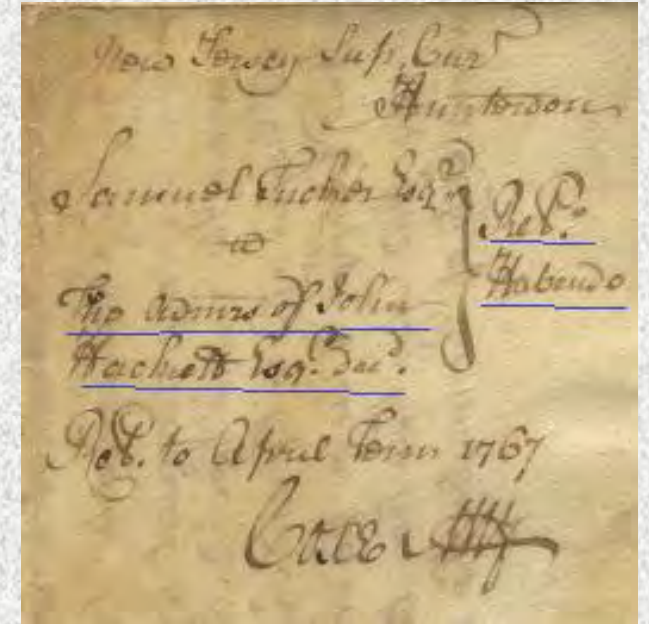 New Jersey Sup. Cur^t
Hunterdon
Samuel Tucker Esq^r.
vs
The Admrs of John
Hackett Esq^r. Dec^d.
Ret^o.
Habendo
Ret. to April Term 1767
Att^y